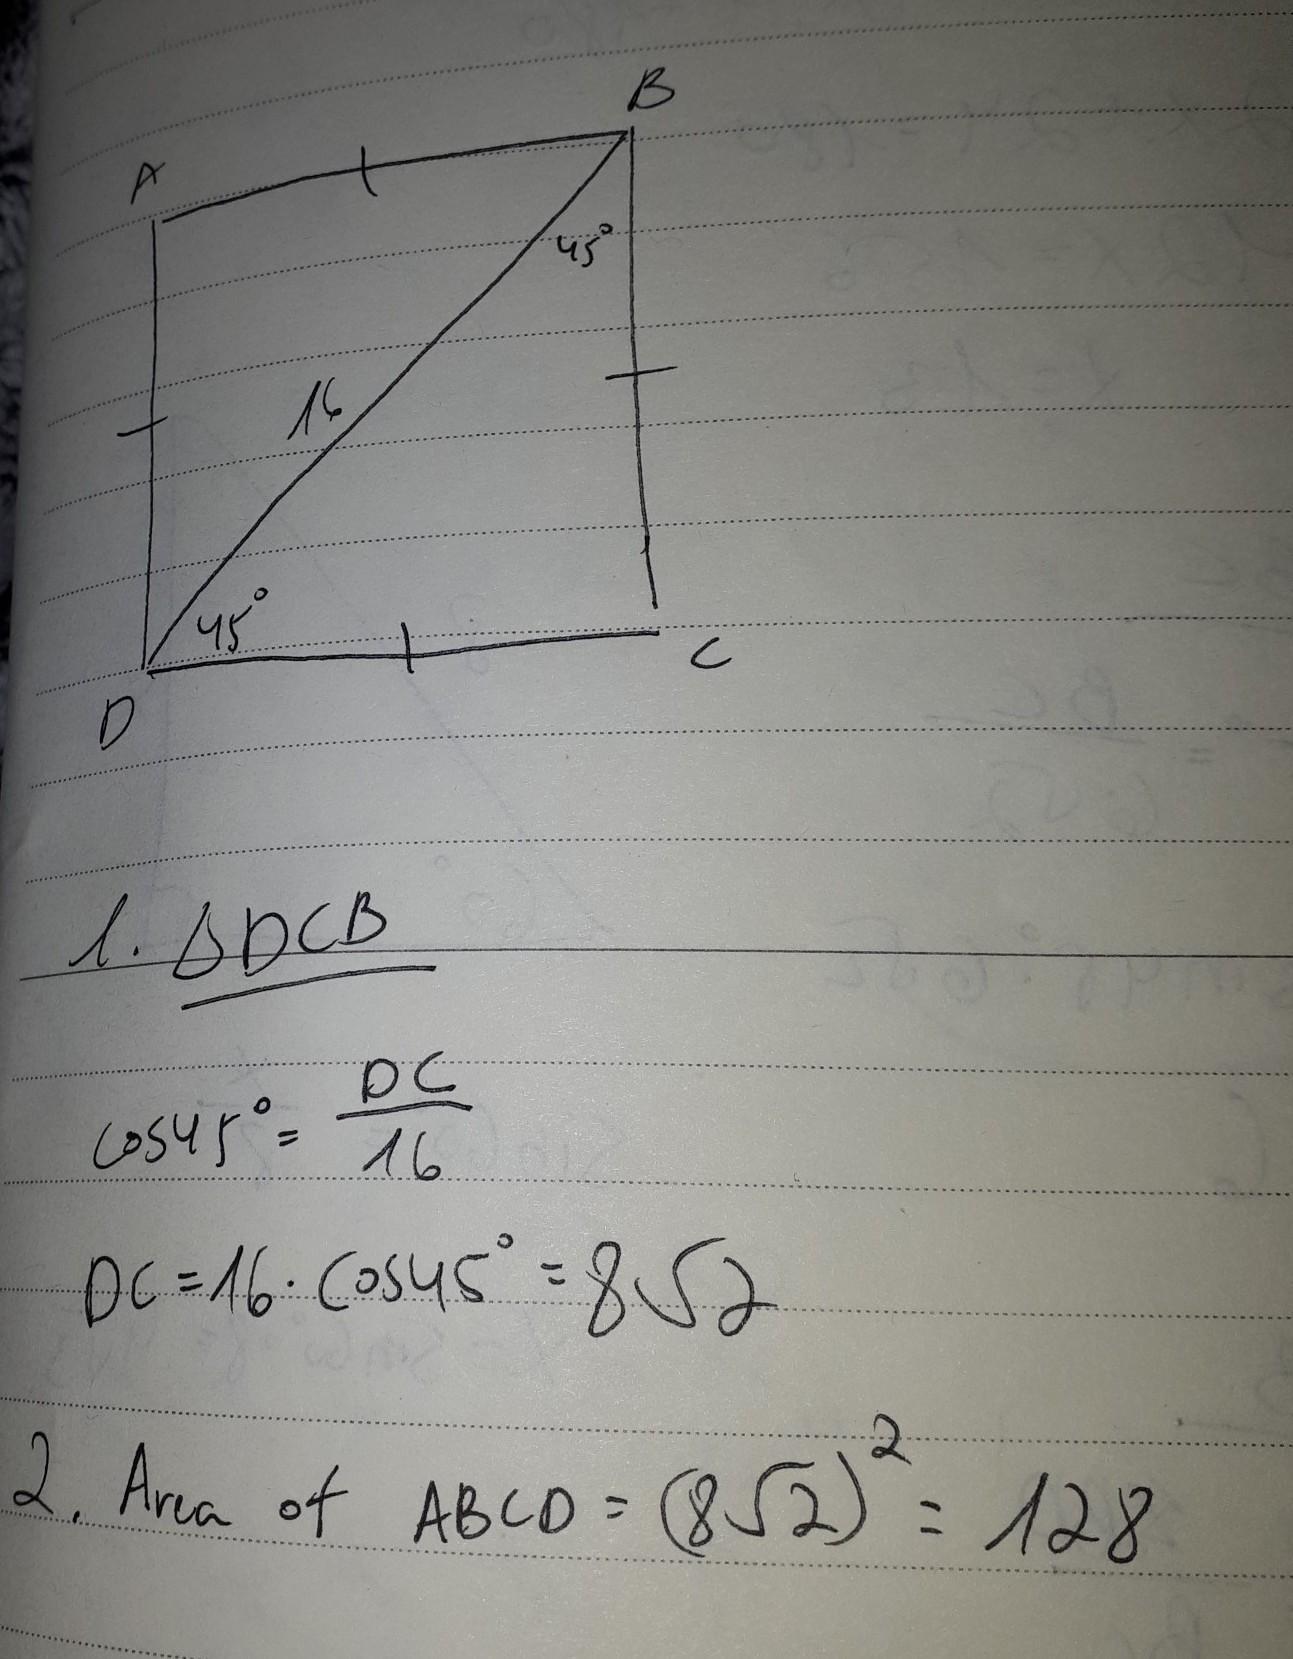 B
A
45°
16
45°
C
D
1. ΔDCB
cos45° = DC/16
DC = 16 · cos45° = 8√2
2. Area of ABCD = (8√2)² = 128